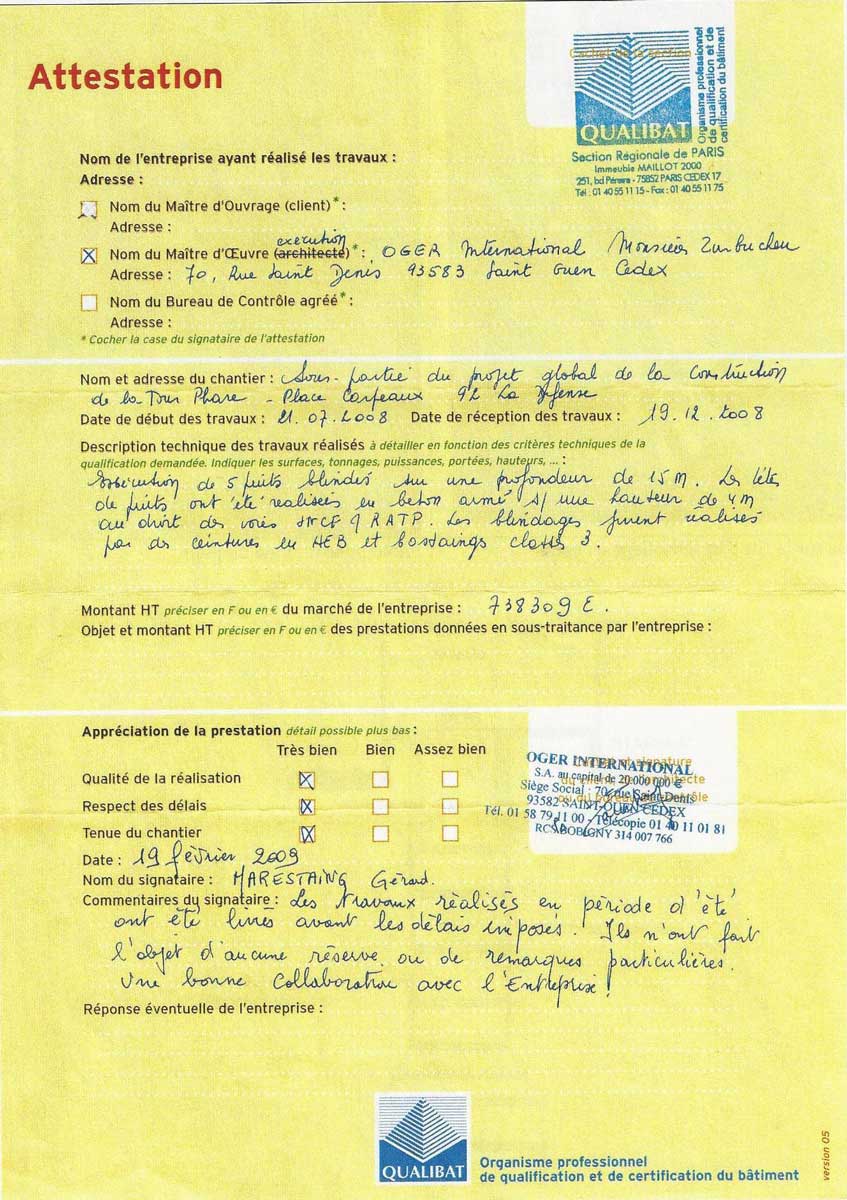 Attestation
Cachet de la section
QUALIBAT
Organisme professionnel
de qualification et de
certification du bâtiment
Section Régionale de PARIS
Immeuble MAILLOT 2000
251, bd Péreire - 75852 PARIS CEDEX 17
Tél : 01 40 55 11 15 - Fax : 01 40 55 11 75
Nom de l'entreprise ayant réalisé les travaux :
Adresse :
Nom du Maître d'Ouvrage (client)* :
Adresse :
execution
Nom du Maître d'Œuvre (architecte)* : OGER International Monsieur
Adresse : 70, Rue Saint Denis 93583 Saint Ouen Cedex
Nom du Bureau de Contrôle agréé* :
Adresse :
* Cocher la case du signataire de l'attestation
Nom et adresse du chantier : Sous-partie du projet global de la Construction
de la Tour Phare - Place Carpeaux 92 La Défense
Date de début des travaux : 21.07.2008 Date de réception des travaux : 19.12.2008
Description technique des travaux réalisés à détailler en fonction des critères techniques de la
qualification demandée. Indiquer les surfaces, tonnages, puissances, portées, hauteurs, ... :
Exécution de 5 puits blindés sur une profondeur de 15 M. Les têtes
de puits ont été réalisées en beton armé s/ une hauteur de 4 m
au droit des voies SNCF / RATP. Les blindages furent réalisés
par des ceintures en HEB et bastaings classe 3.
Montant HT préciser en F ou en € du marché de l'entreprise : 738309 E.
Objet et montant HT préciser en F ou en € des prestations données en sous-traitance par l'entreprise :
Appréciation de la prestation détail possible plus bas :
Très bien Bien Assez bien
Qualité de la réalisation
Respect des délais
Tenue du chantier
OGER INTERNATIONAL
S.A. au capital de 20.000 000 €
Siège Social : 70, rue Saint-Denis
93582 SAINT-OUEN CEDEX
Tél. 01 58 79 11 00 - Télécopie 01 40 11 01 81
RCS BOBIGNY 314 007 766
Date : 19 février 2009
Nom du signataire : MARESTAING Gérard.
Commentaires du signataire : Les travaux réalisés en période d'été
ont été livrés avant les délais imposés. Ils n'ont fait
l'objet d'aucune réserve ou de remarques particulières.
Une bonne collaboration avec l'Entreprise !
Réponse éventuelle de l'entreprise :
QUALIBAT
Organisme professionnel
de qualification et de certification du bâtiment
version 05